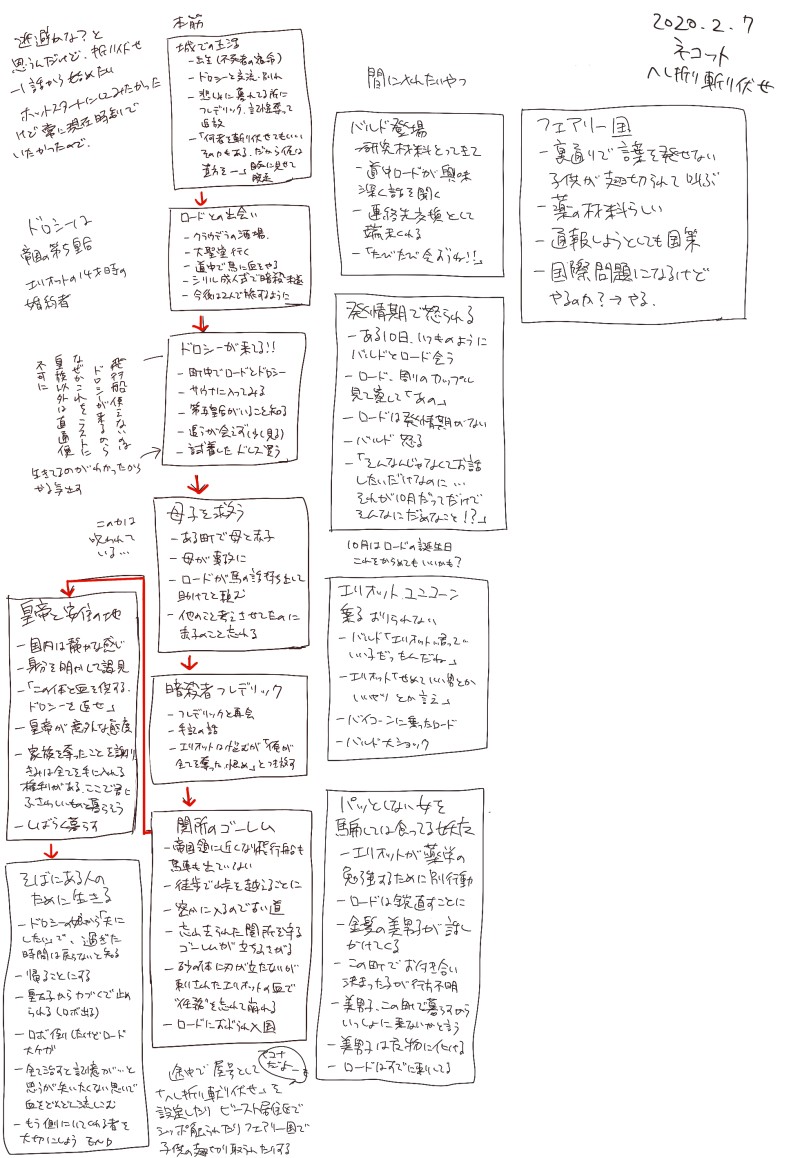 2020.2.7
ネコット
へし折り斬り伏せ
逃避かな？と
思うんだけど、折り伏せ
1話から始めたい
ホットスタートにしてみたかった
けど常に現在時点で
いたかったので、
ドロシーは
帝国の第5皇台
エリオットの14才時の
婚約者
飛行船使えないのは
ドロシーが来るのら
なぜかこれをこえて
皇族以外は直通便
不可に
生きてるのがわかったから
本筋
城での生活
- 出生(不死者の宿命)
- ドロシーと交流・別れ
- 悲しみに暮れてる所に
フレデリック、記憶奪って
追放
- 「何者を斬り伏せてもいい
ロードとの出会い
- クラウデラの酒場、
- 大聖堂行く
- 道中で馬に血をやる
- シリル成人式で暗殺未遂
- 今後は2人で旅するように
ドロシーが来てる!!
- 町中でロードとドロシー
- サウナに入ってみる
- 第五皇台がいること知る
- 追うが会えず(少し見る)
- 試着したドレス買う
母子を救う
- ある町で母と赤子
- 母が事故に
- ロードが馬の話持ち出して
助けてと頼む
- 他のこと考えさせてたのに
赤子のこと忘れる
このかは
呪われて
いる…
暗殺者フレデリック
- フレデリックと再会
- 手記の話
- エリオットは悩むが「俺が
全てを奪った、恨め」とつき放す
関所のゴーレム
- 帝国領に近くなり飛行船も
馬車も出ていない
- 徒歩で峠を越えることに
- 密かに入るので古い道
- 忘れ去られた関所を守る
ゴーレムが立ちふさがる
- 砂の体に刃が立たないが
刺しされたエリオットの血で
"任務"を忘れて崩れる
- ロードにおぶられ入国
皇帝と安住の地
- 国内は静かな感じ
- 身分を明かして謁見
- 「この体と血を供する、
ドロシーを直せ」
- 皇帝が意外な態度
- 家族を奪ったことを謝り
きみは全てを手に入れる
権利がある、ここで君に
ふさわしいものと暮らそう
- しばらく暮らす
そばにある人の
ために生きる
- ドロシーの娘から「夫に
したい」で、過ぎた
時間は戻らないと知る
- 帰ることにする
- 皇太子から力づくで止め
られる(ロボ出る)
- ロボ倒したけどロード
大ケガ
- 全て治すと記憶が…と
思うが失いたくない思いで
血をどんどん流しこむ
- もう側にいてくれる者を
大切にしよう END
途中で屋号として
「へし折り斬り伏せ」を
設定したり ビースト居住区で
シッポ触られたりフェアリー国で
子供の翅切り取られたりする
間に入れたいやつ
バルド登場
- 研究材料とってきて
- 道中ロードが興味
深く話を聞く
- 連絡先交換として
端末くれる
- 「たびたび会おうね!!」
発情期で怒られる
- ある10日、いつものように
バルドとロード会う
- ロード、周りのカップル
見て壹して「あの」
- ロードは発情期がない
- バルド怒る
- 「そんなんじゃなくてお話
したいだけなのに…
それが10月だってだけで
そんなにだめなこと!?」
10月はロードの誕生日
これをからめてもいいかも？
エリオットユニコーン
乗る おりられない
- バルド「エリオットくんって
いい子だったもんだね」
- エリオット「せめていい男とか
いいヤツとか言え」
- バイコーンに乗ったロード
- バルド大ショック
パッとしない女を
騙しては食ってる妖夜
- エリオットが薬学の
勉強するために別行動
- ロードは鎧直すことに
- 金髪の美男子が話し
かけてくる
- この町でお付き合い
決まったが行方不明
- 美男子、この町で暮らすのら
いっしょに来ないかと言う
- 美男子は反物に化ける
フェアリー国
- 裏通りで言葉を発せない
子供が翅切られて叫ぶ
- 薬の材料らしい
- 通報しようとしても国策
- 国際問題になるけど
やるのか？→やる.